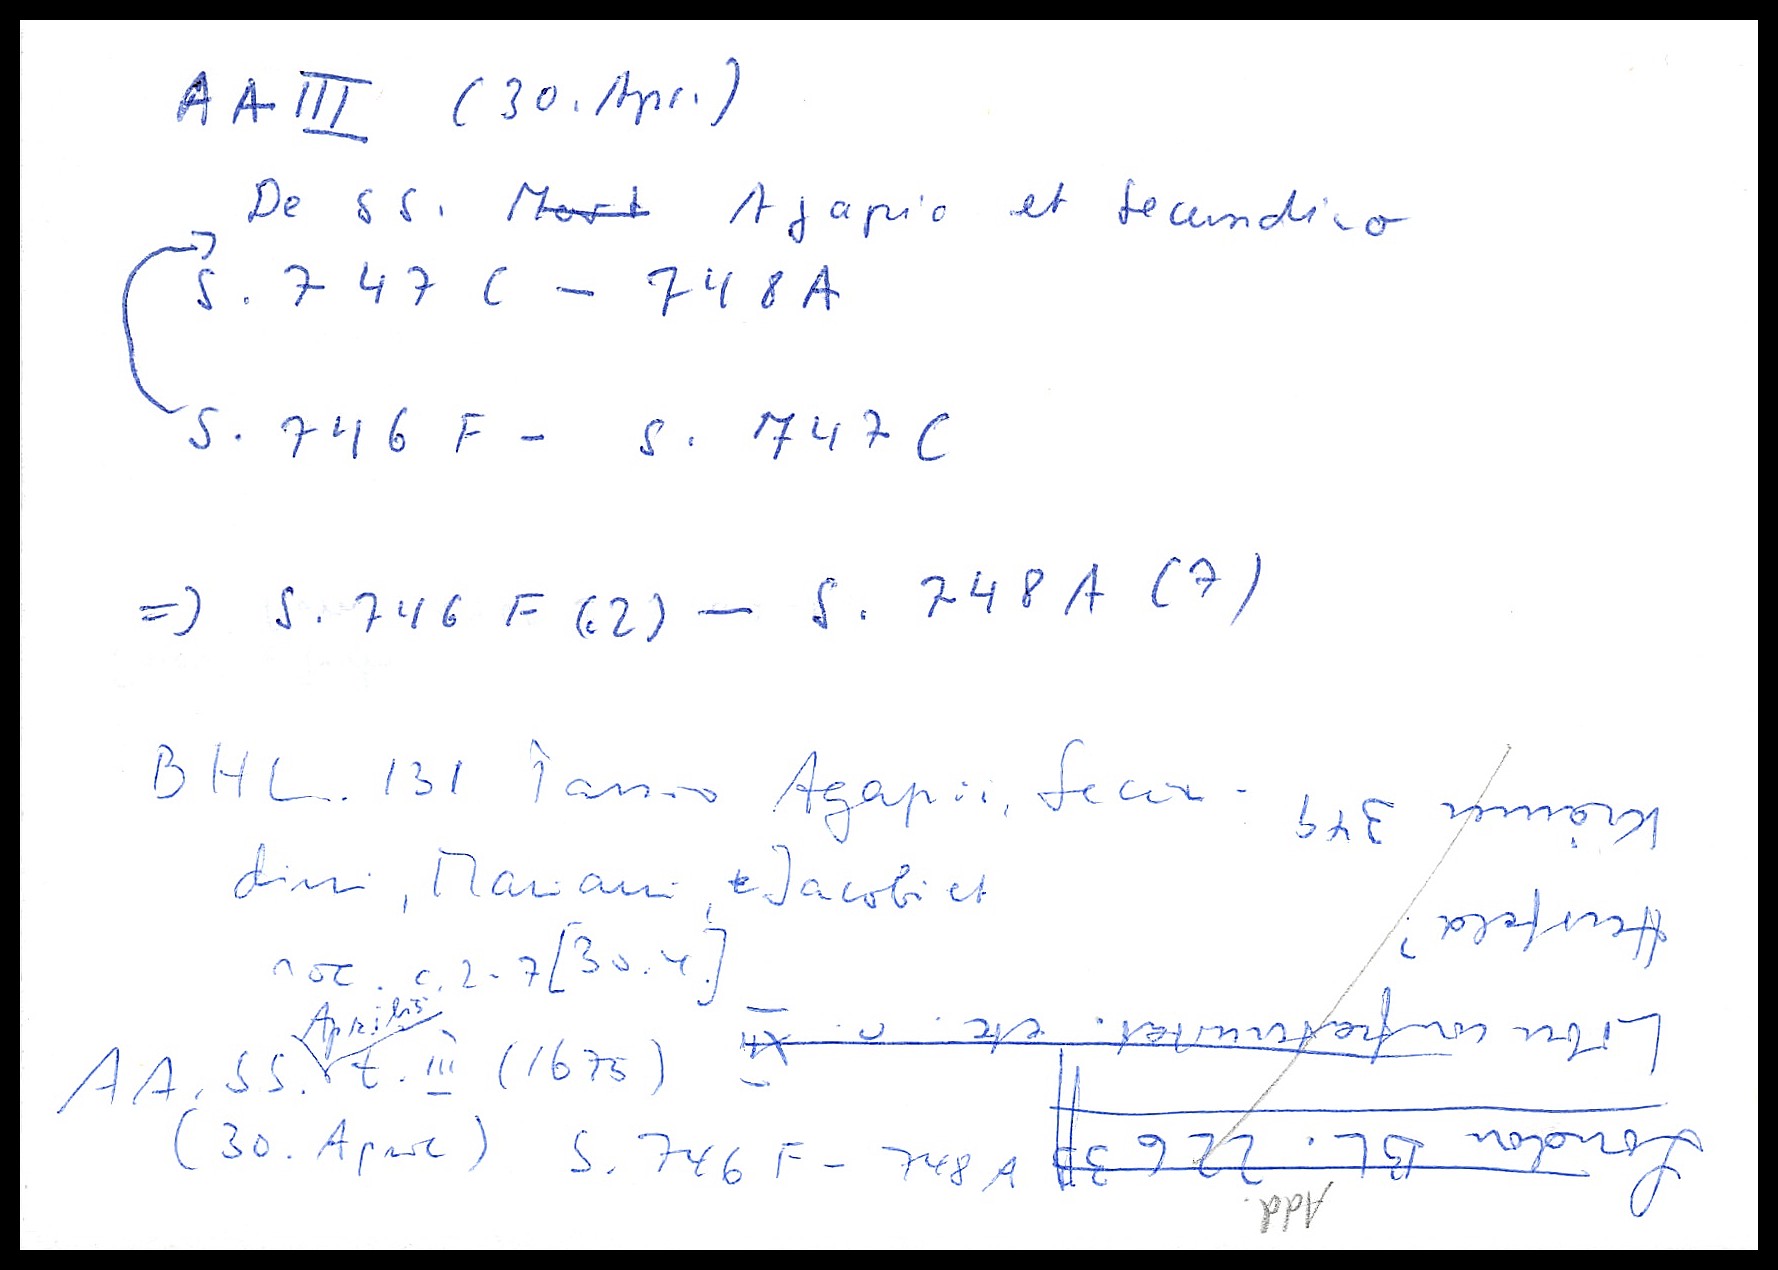 AA III (30. Apr.)
De SS. Mart Agapio et Secundino
S. 747 C – 748 A
S. 746 F – S. 747 C
=) S. 746 F (2) – S. 748 A (7)
BHL. 131 Passio Agapii, Secun-
dini, Mariani, Jacobi et
soc. c. 2-7 [30.4.]
AA. SS. Aprilis t. III (1675)
(30. Aprilis) S. 746 F – 748 A
Add.
London BL. 22635
Liber confraternitat. etc.
Hersfeld?
Krämer 349